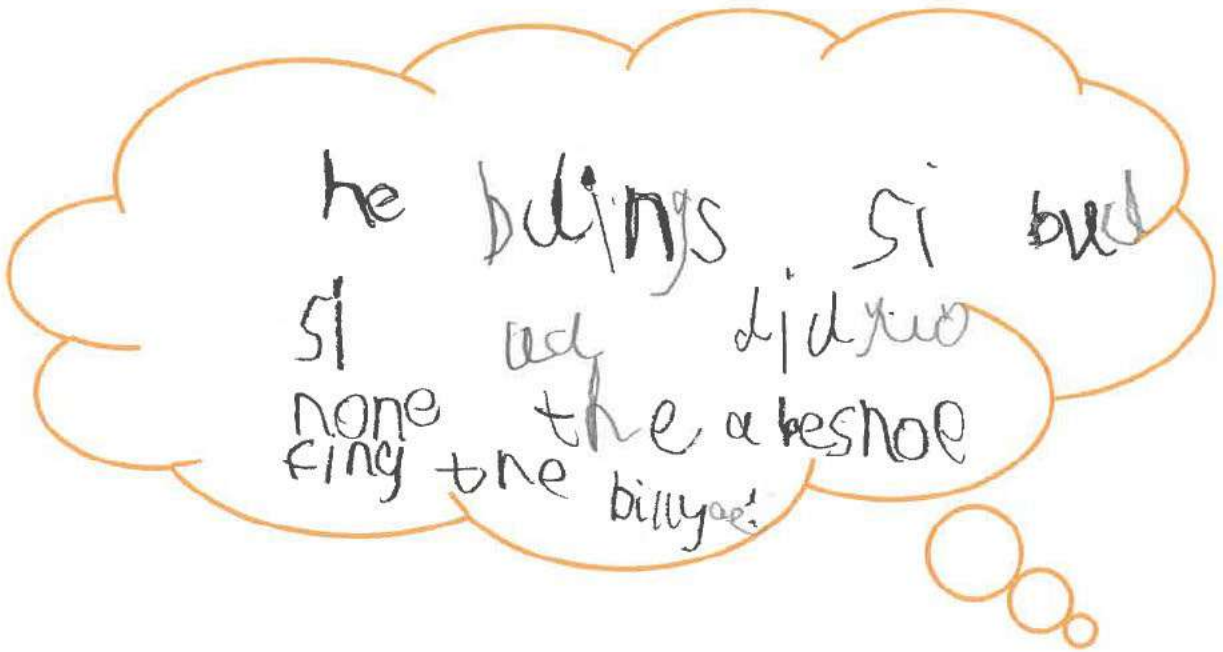 he bulings si bud
si ad did
none the abesnoe
fing the billy